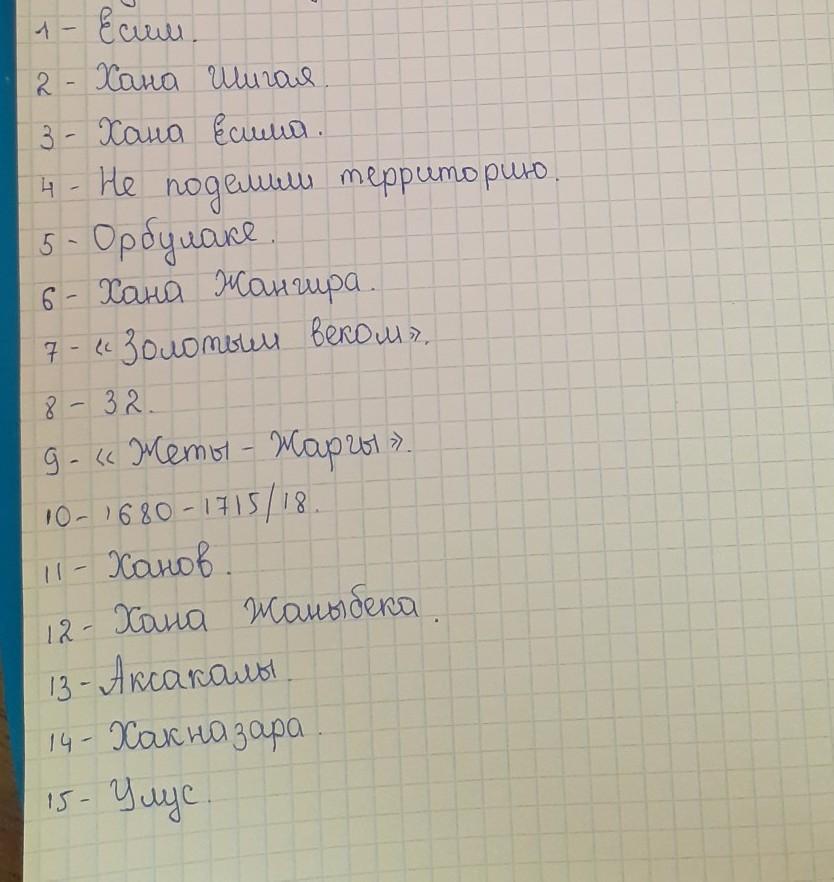 1 - Есим.
2 - Хана Шигая.
3 - Хана Есима.
4 - Не поделили территорию.
5 - Орбулаке.
6 - Хана Жангира.
7 - «Золотым веком».
8 - 32.
9 - «Жеты - Жаргы».
10 - 1680 - 1715/18.
11 - Ханов.
12 - Хана Жаныбека.
13 - Аксакалы.
14 - Хакназара.
15 - Улус.